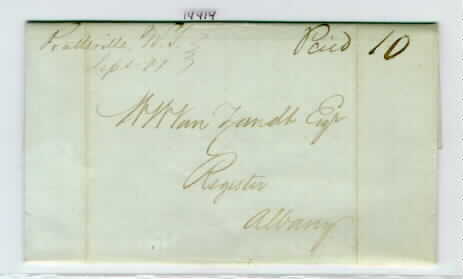 14414
Prattsville, N.Y. Paid 10
Sept.
W W Van Zandt Esqr
Register
Albany